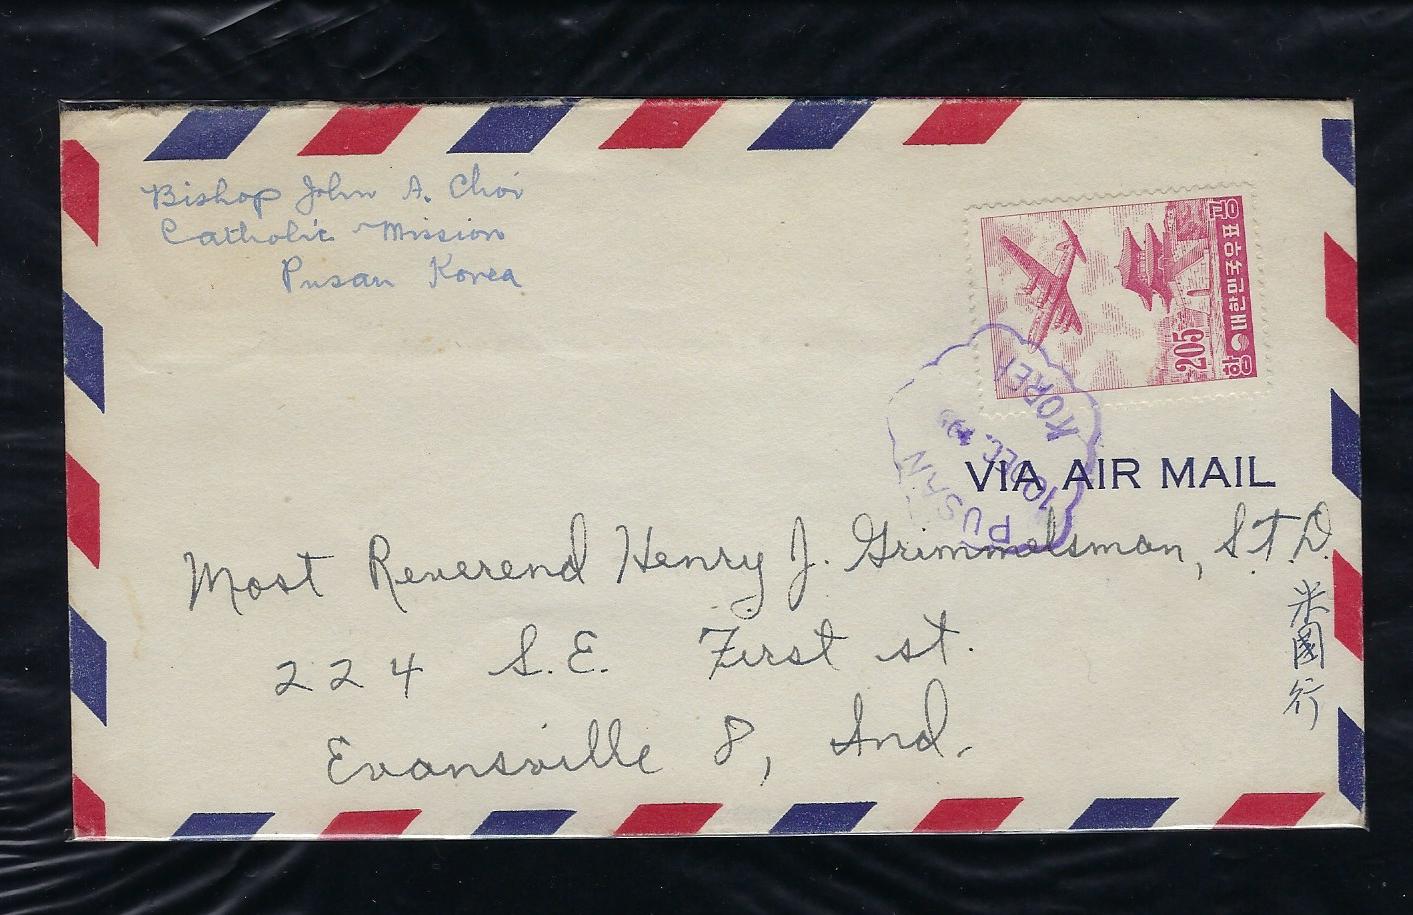 Bishop John A. Choi
Catholic Mission
Pusan Korea
항공
대한민국우표
205
PUSAN
10 DEC. 195
KOREA
VIA AIR MAIL
Most Reverend Henry J. Grimmelsman, S.T.D.
224 S.E. First st.
Evansville 8, Ind.
米國行